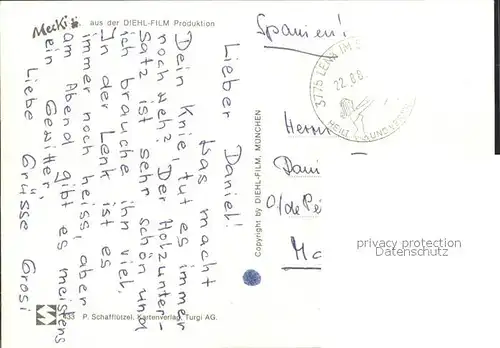 Mecki aus der DIEHL-FILM Produktion
Lieber Daniel!
Was macht
Dein Knie, tut es immer
noch weh? Der Holzunter-
satz ist sehr schön und
ich brauche ihn viel.
In der Lenk ist es
immer noch heiss, aber
am Abend gibt es meistens
ein Gewitter.
Liebe Grüsse Grosi
833 P. Schafflützel, Kartenverlag, Turgi AG.
Copyright by DIEHL-FILM, MÜNCHEN
Spanien!
3775 LENK IM
22.8.8
HEIL UND
Herrn
Dani
O/de Pé
Ma
privacy protection
Datenschutz